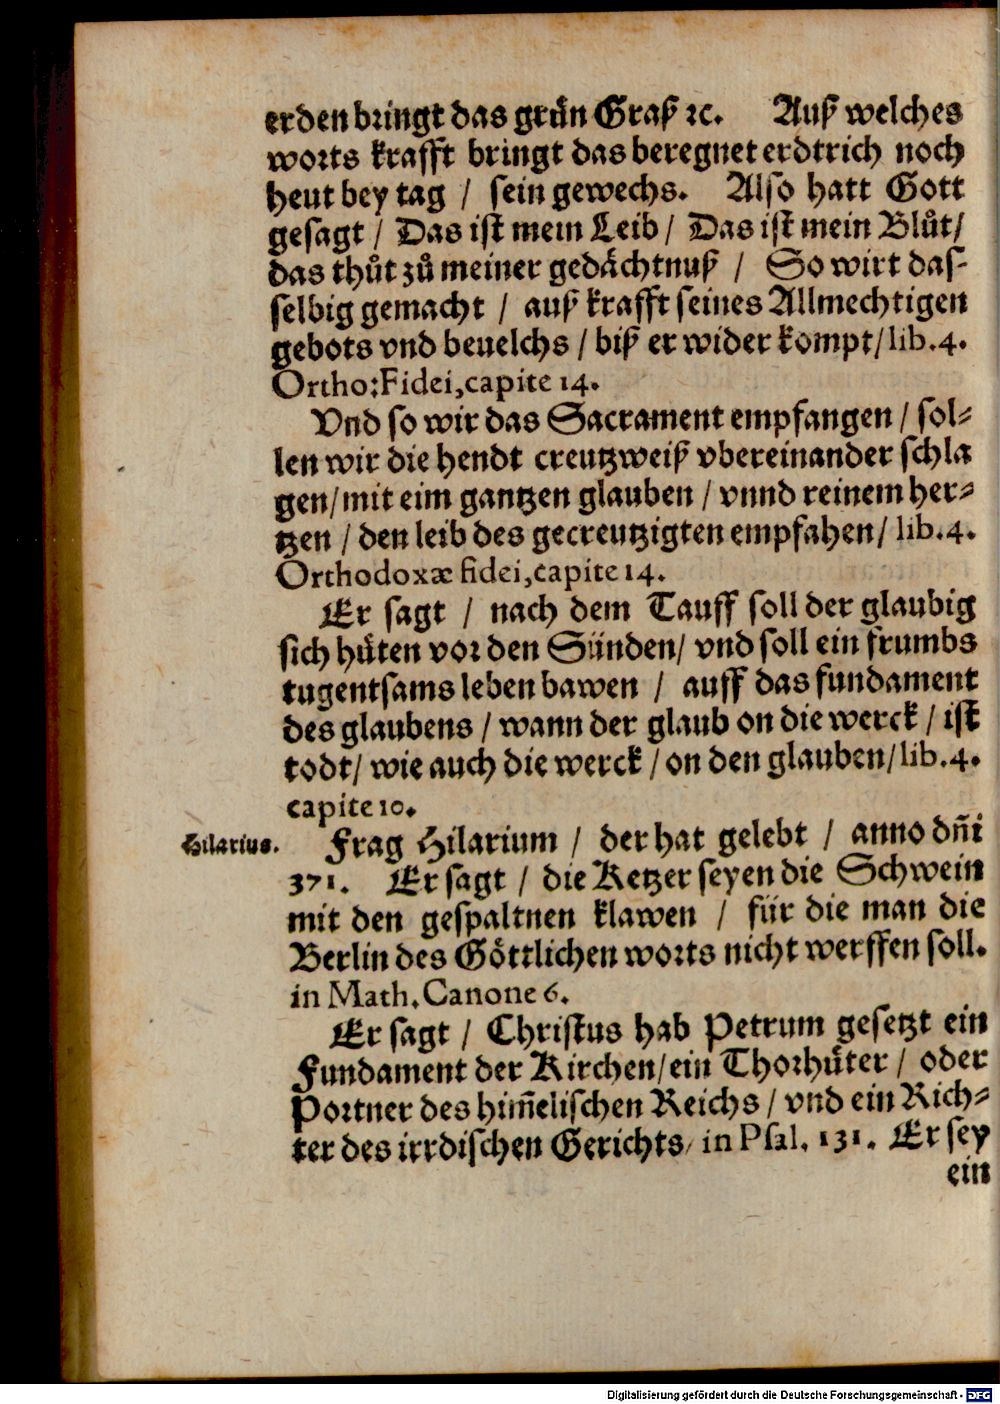 erden bringt das grün Graß ꝛc. Auß welches
worts krafft bringt das beregnet erdtrich noch
heut bey tag / sein gewechs. Also hatt Gott
gesagt / Das ist mein Leib / Das ist mein Blůt /
das thůt zů meiner gedächtnuß / So wirt das-
selbig gemacht / auß krafft seines Allmechtigen
gebots vnd beuelchs / biß er wider kompt / lib. 4.
Ortho: Fidei, capite 14.
Vnd so wir das Sacrament empfangen / sol-
len wir die hendt creutzweiß vbereinander schla
gen / mit eim gantzen glauben / vnnd reinem her-
tzen / den leib des gecreutzigten empfahen / lib. 4.
Orthodoxæ fidei, capite 14.
Er sagt / nach dem Tauff soll der glaubig
sich hüten vor den Sünden / vnd soll ein frumbs
tugentsams leben bawen / auff das fundament
des glaubens / wann der glaub on die werck / ist
todt / wie auch die werck / on den glauben / lib. 4.
capite 10.
Hilarius.
Frag Hilarium / der hat gelebt / anno dñi
371. Er sagt / die Ketzer seyen die Schwein
mit den gespaltnen klawen / für die man die
Berlin des Göttlichen worts nicht werffen soll.
in Math. Canone 6.
Er sagt / Christus hab Petrum gesetzt ein
Fundament der Kirchen / ein Thorhüter / oder
Portner des him̃elischen Reichs / vnd ein Rich-
ter des irrdischen Gerichts / in Psal. 131. Er sey
ein
Digitalisierung gefördert durch die Deutsche Forschungsgemeinschaft - DFG